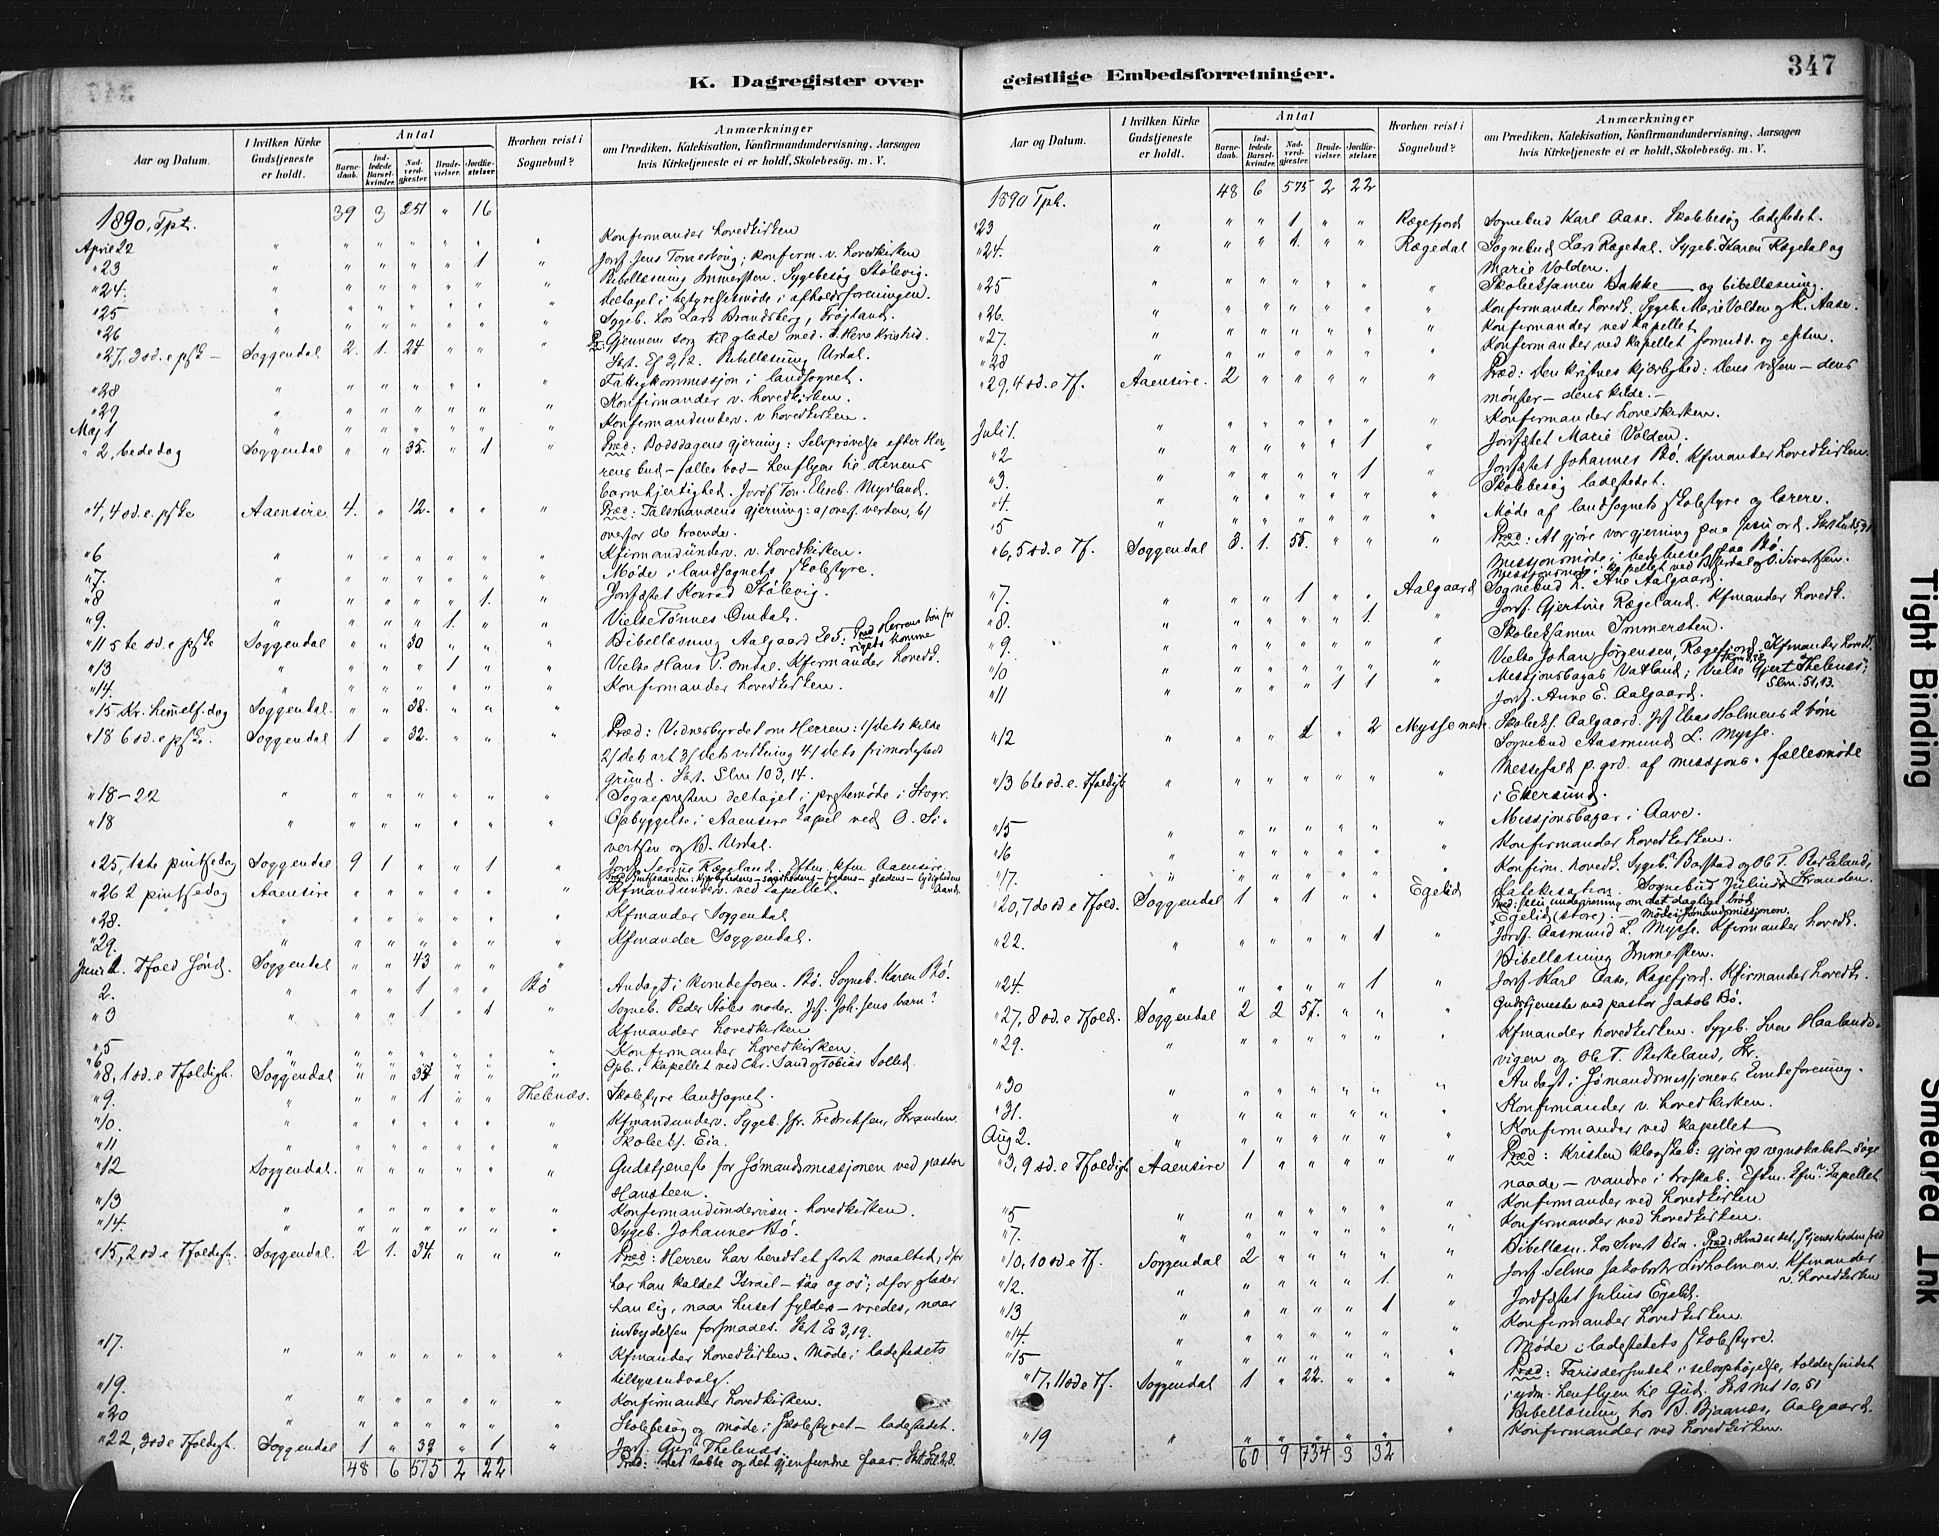 347
K. Dagregister over
geistlige Embedsforretninger.
Aar og Datum.
I hvilken Kirke Gudstjeneste er holdt.
Antal
Barne-daab.
Ind-ledede Barsel-kvinder.
Nad-verd-gjester.
Brude-vielser.
Jordfæ-stelser.
Hvorhen reist i Sognebud?
Anmærkninger
om Prædiken, Katekisation, Konfirmandundervisning, Aarsagen
hvis Kirketjeneste ei er holdt, Skolebesøg. m. V.
1890, Tpt. 39 3 251 " 16
April 22 " " " " " " " Konfirmander hovedkirken
" 23 " " " " " 1 " Jordf. Jens Tonnesborg; konfirm. v. hovedkirken
" 24. " " " " " " " Bibellæsning Immersten. Sygebesøg Stølevig.
" 25 " " " " " " " Deltaget i bestyrelsesmøde i afholdsforeningen.
" 26 " " " " " " " Sygeb. hos Lars Brandsberg, Frøjland.
" 27, 3 sd. e psке Soggendal 2. 1. 24 " " " Gjennem sorg til glæde med d. Herre Kristus.
Bibellæsning Urdal.
" 28 " " " " " " " Fattigkommissjon i landsognet.
" 29 " " " " " " " Konfirmander v. hovedkirken.
Maj 1 " " " " " " " Konfirmandunderv. v hovedkirken.
" 2, bededag Soggendal " " 35. " 1 " Præd: Bodsdagens gjerning: Selvprøvelse efter Her-
rens bud – fælles bod – henflyen til Herrens
barmhjertighed. Jordf Ton. Eliseb. Mydland.
" 4, 4 sd. e. pske Aaensire 4. " 12. " " " Præd: Talsmandens gjerning: a) overf. verden, b)
overfor de troende.
" 6 " " " " " " " Kfirmandunderv. v. hovedkirken.
" 7. " " " " " " " Møde i landsognets skolestyre.
" 8 " " " " " 1. " Jordfæstet Konrad Stølevig.
" 9. " " " " 1 " " Vielse Tønnes Omdal.
" 11 5te sd. e pske Soggendal " " 30 " " " Bibellæsning Aalgaard
" 13 " " " " 1 " " Vielse Hans P. Omdal. Kfirmander hovedk.
" 14. " " " " " " " Konfirmander hovedkirken.
" 15 Kr. himmelf. dag Soggendal " " 38. " " "
" 18 6 sd. e pske. Soggendal 1 " 32. " " " Præd: Vidnesbyrdet om Herren: 1/ dets kilde
2/ dets art 3/ dets virkning 4/ dets frimodigheds
grund. Skt. Slm 103, 14.
" 18–22 " " " " " " " Sognepresten deltaget i prestemøde i Stavgr.
" 18 " " " " " " " Opbyggelse i Aaensire kapel ved O. Si-
vertsen og B. Urdal.
" 25, 1ste pintsedag Soggendal 9 1 " " 1 " Jordf. Serine Rægeland. Eftm. kfm. Aaensire.
" 26 2 pintsedag Aaensire " " " " " " Kfmandunderv. ved kapellet.
" 28. " " " " " " " Kfmander Soggendal
" 29. " " " " " " " Kfmander Soggendal.
Juni 1. Tfold. sønd. Soggendal " " 43 " " "
2. " " " 1 " " Bø Andagt i kvindeforen. Bø. Sogneb. Karen Bø.
" 3 " " " 1 " 1 " Sogneb. Peder Støles moder. Jf. Joh. Jens barn?
" 5 " " " " " " " Kfmander hovedkirken
" 6 " " " " " " " Konfirmander hovedkirken.
" 8, 1 sd. e Tfoldigh. Soggendal " " 37 " " " Opb. i kapellet ved Chr. Sand og Tobias Solled.
" 9. " " " 1 " " Thelenæs. Skolestyre landsognet.
" 10. " " " " " " " Kfmandunderv. Sygeb. Jfr. Fredriksen, Stranden.
" 11 " " " " " " " Skolebes. Eia.
" 12 Soggendal. " " " " " " Gudstjeneste for Sømandsmissjonen ved pastor
Hansteen.
" 13 " " " " " " " Konfirmandundervisn. hovedkirken.
" 14. " " " " " " " Sygeb. Johannes Bø.
" 15, 2 sd. e Tfoldigh. Soggendal. 2 1. 34. " " " Præd: Herren har beredt et stort maaltid; dfor
har han kaldet Israel – saa og os; dfor glæder
han sig, naar huset fyldes – vredes, naar
indbydelsen forsmaaes. Skt. Es 3,19.
" 17. " " " " " " " Kfmander hovedkirken. Møde i ladestedets
tilsynsudvalg.
" 19. " " " " " " " Konfirmander hovedkirken.
" 20 " " " " " " " Skolebesøg og møde i skolestyret – ladestedet.
" 22, 3 sd. e Tfoldigh. Soggendal 1 " 39 " 1 " Jordf. Guri Thelenæs.
Præd: Det tabte og det gjenfundne faar.
48 6 575 2 22
Aar og Datum.
I hvilken Kirke Gudstjeneste er holdt.
Antal
Barne-daab.
Ind-ledede Barsel-kvinder.
Nad-verd-gjester.
Brude-vielser.
Jordfæ-stelser.
Hvorhen reist i Sognebud?
Anmærkninger
om Prædiken, Katekisation, Konfirmandundervisning, Aarsagen
hvis Kirketjeneste ei er holdt, Skolebesøg. m. V.
1890 Tpt. 48 6 575 2 22
" 23 " " " 1 " " Rægefjord Sognebud Karl Aase. Skolebesøg ladestedet.
" 24. " " " 1. " " Rægedal Sognebud Lars Rægedal. Sygeb. Karen Rægedal og
Marie Volden.
" 25 " " " " " " " Skoleeksamen Bakke – og bibellæsning.
" 26. " " " " " " " Konfirmander hovedk. Sygeb. Marie Volden og K. Aase.
" 27. " " " " " " " Konfirmander ved kapellet
" 28 " " " " " " " Konfirmander ved kapellet formidd. og eftm.
" 29, 4 sd. e Tf. Aaensire. 2 " " " " " Præd: Den kristnes kjærlighed: Dens væsen – dens
mønster – dens kilde. –
Juli 1. " " " " " " " Konfirmander hovedkirken.
" 2 " " " " " 1 " Jordfæstet Marie Volden.
" 3. " " " " " 1 " Jordfæstet Johannes Bø. Kfmander hovedkirken.
" 4. " " " " " " " Skolebesøg ladestedet.
" 5 " " " " " " " Møde af landsognets skolestyre og lærere.
" 6, 5 sd. e Tf. Soggendal 3. 1. 55. " " " Præd: At gjøre vor gjerning paa Jesu ord.
Missjonsmøde i bedehuset paa Bø.
" 7. " " " 1 " " Aalgaard Sognebud t. Ane Aalgaard.
" 8. " " " " " 1. " Jordf. Gjertine Rægeland. Kfmander hovedk.
" 9. " " " " " " " Skoleeksamen Immersten.
" 10 " " " " " " " Vielse Johan Jørgensen, Rægefjord. Kfmander hovedk.
" 11 " " " " 1 1 " Missjonsbasar Vatland; Vielse Gjert Thelenæs;
Slm. 51, 13.
Jordf. Anne E. Aalgaard.
" 12 " " " 1 " 2 Mysse Skolebes. Aalgaard. Jf Elias Holmens 2 børn
Sognebud Aasmund L. Mysse.
" 13 6te sd. e. Tfoldigh " " " " " " " Messefald p. grd. af missjons-fællesmøde
i Ekersund.
" 15 " " " " " " " Missjonsbasar i Aave.
" 16 " " " " " " " Konfirmander hovedkirken.
" 17. " " " " " " " Konfirm. hovedk. Sygeb. Barstad og Ob T. Birkeland
" 20, 7de sd e Tfold. Soggendal 1 " 1 " " Egelid Katekesation. Sognebud Julius Stranden.
Egelid (store). – Møde i Sømandsmissjonen.
" 22. " " " " " 1 " Jordf. Aasmund L. Mysse. Kfirmander hovedk.
Bibellæsning Immersten.
" 24. " " " " " 1 " Jordf. Karl Aase, Rægefjord. Kfirmander hovedk.
" 27, 8 sd. e Tfold. Soggendal 2 2 57. " " " Gudstjeneste ved pastor Jakob Bø.
" 29. " " " " " " " Kfmander hovedkirken. Sygeb. Sven Haalands-
vigen og Ob T. Birkeland, Str.
" 30 " " " " " " " Andagt i Sømandsmissjonens kvindeforening.
" 31. " " " " " " " Konfirmander v. hovedkirken.
Aug 2. " " " " " " " Konfirmander ved kapellet
" 3, 9 sd. e Tfoldigh Aaensire 1 " " " " " Præd: Kristen klogskab: gjøre op regnskabet – søge
naade – vandre i troskab. Eftm. kfm. kapellet
" 5 " " " " " " " Konfirmander ved hovedkirken
" 7. " " " " " " " Konfirmander ved hovedkirken.
" 10, 10 sd. e Tf. Soggendal 2 " " " " " Bibellæsn. hos Sivert Eia.
" 12. " " " " " 1. " Jordf. Selma Jakobsd. Lisholmen. Kfmander
v. hovedkirken
" 13 " " " " " 1 " Jordfæstet Julius Egelid.
" 14. " " " " " " " Konfirmander hovedkirken.
" 15 " " " " " " " Møde i ladestedets skolestyre.
" 17, 11 sd e Tf. Soggendal 1 " 22. " " " Præd: Farisæersindet i selvophøjelse, toldersindet
i ydm. henflyen til Gud.
Bibellæsning hos B. Bjaanæs, Aalgaard.
" 19 " " " " " " " Konfirmander ved hovedkirken.
60 9 734 3 32
Tight Binding
Smeared Ink